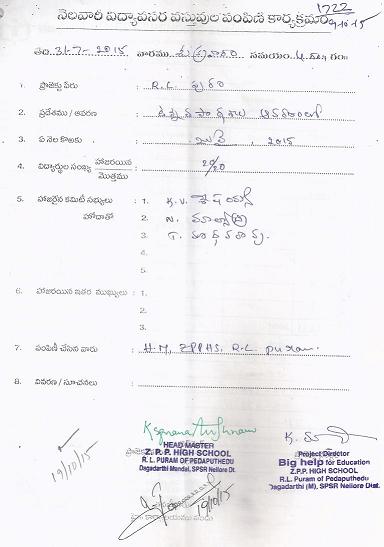 నెలవారీ విద్యావసర వస్తువుల పంపిణీ కార్యక్రమం
1722
9-10-15
తేది 31-7-2015 వారము శుక్రవారం సమయం 4.
1. ప్రాజెక్టు పేరు : R.L. పురం
2. ప్రదేశము / ఆవరణ : ఉన్నత పాఠశాల ఆవరణలో
3. ఏ నెల కొరకు : , 2015
4. విద్యార్థుల సంఖ్య హాజరయిన / మొత్తము : 20/20
5. హాజరైన కమిటీ సభ్యులు : 1. K.V.
హోదాతో 2. N.
3. T.
4.
5.
6. హాజరయిన ఇతర ముఖ్యులు : 1.
2.
3.
7. పంపిణీ చేసిన వారు : H.M, ZPPHS, R.L. puram.
8. వివరణ / సూచనలు :
HEAD MASTER
Z.P.P. HIGH SCHOOL
R. L. PURAM OF PEDAPUTHEDU
Dagadarthi Mandal, SPSR Nellore Dt.
Project Director
Big help for Education
Z.P.P. HIGH SCHOOL
R.L. Puram of Pedaputhedu
Dagadarthi (M), SPSR Nellore Dist.
19/10/15
19/10/15